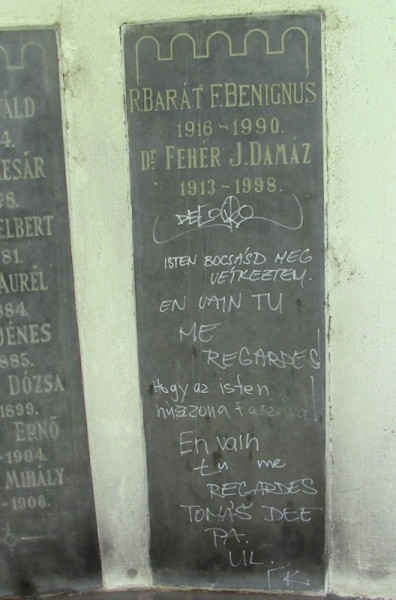 VÁLD
4.
ESÁR
78.
ELBERT
81.
AURÉL
884.
DÉNES
1885.
DÓZSA
1899.
ERNŐ
-1904.
MIHÁLY
-1906.
R.BARÁT F.BENIGNUS
1916-1990.
DR FEHÉR J.DAMÁZ
1913-1998.
ISTEN BOCSÁSD MEG
VÉTKEZTEM.
EN VAIN TU
ME
REGARDES!
Hogy az isten
En vain
tu me
REGARDES
TOMÁŠ DEE
PA.
ÚL.